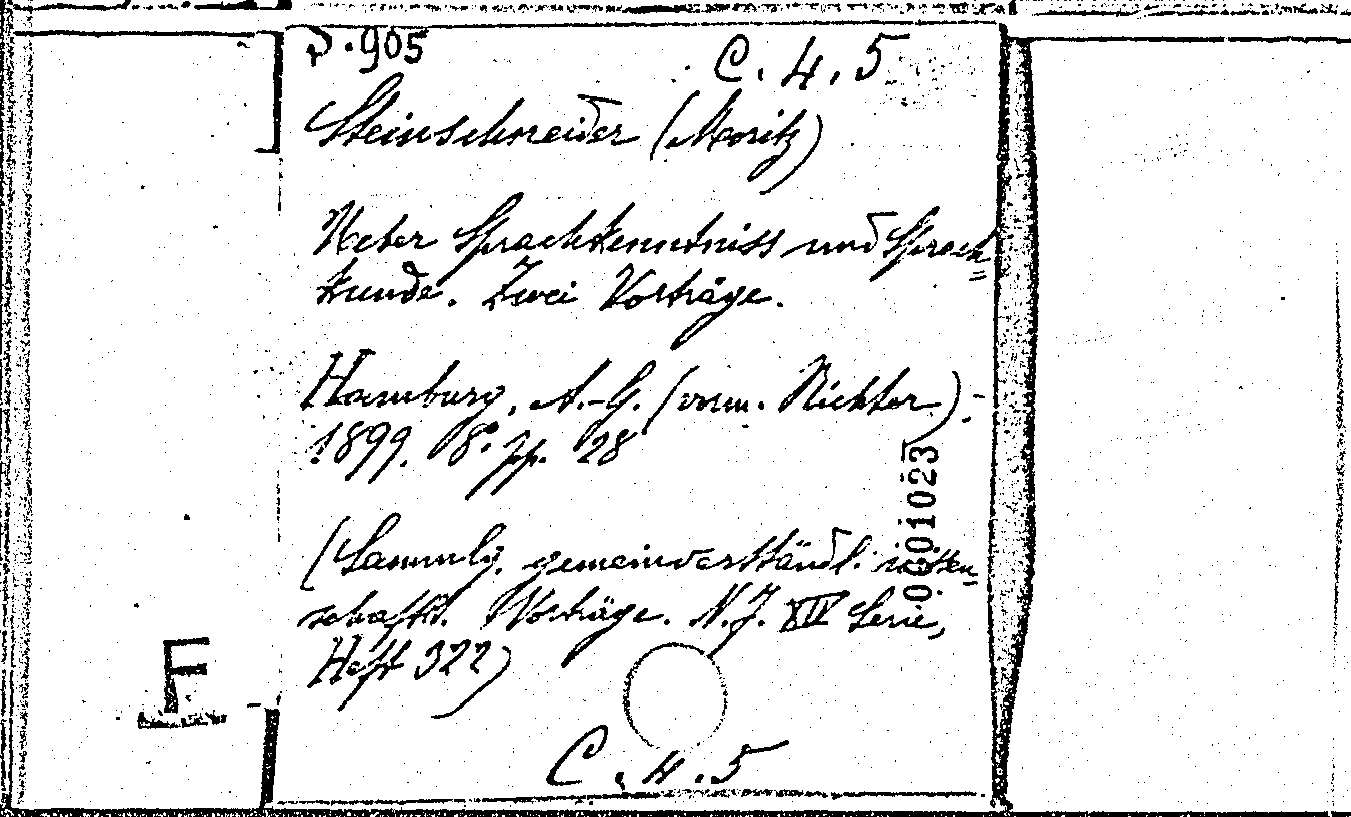 P.905
C.4.5
Steinschneider (Moritz)
Ueber Sprachkenntniss und Sprach=
kunde. Zwei Vorträge.
Hamburg, A.-G. (vorm. Richter).
1899. 8° pp. 28
(Sammlg. gemeinverständl. wissen=
schaftl. Vorträge. N.F. XIV Serie,
Heft 322)
0001023
F
C.4.5